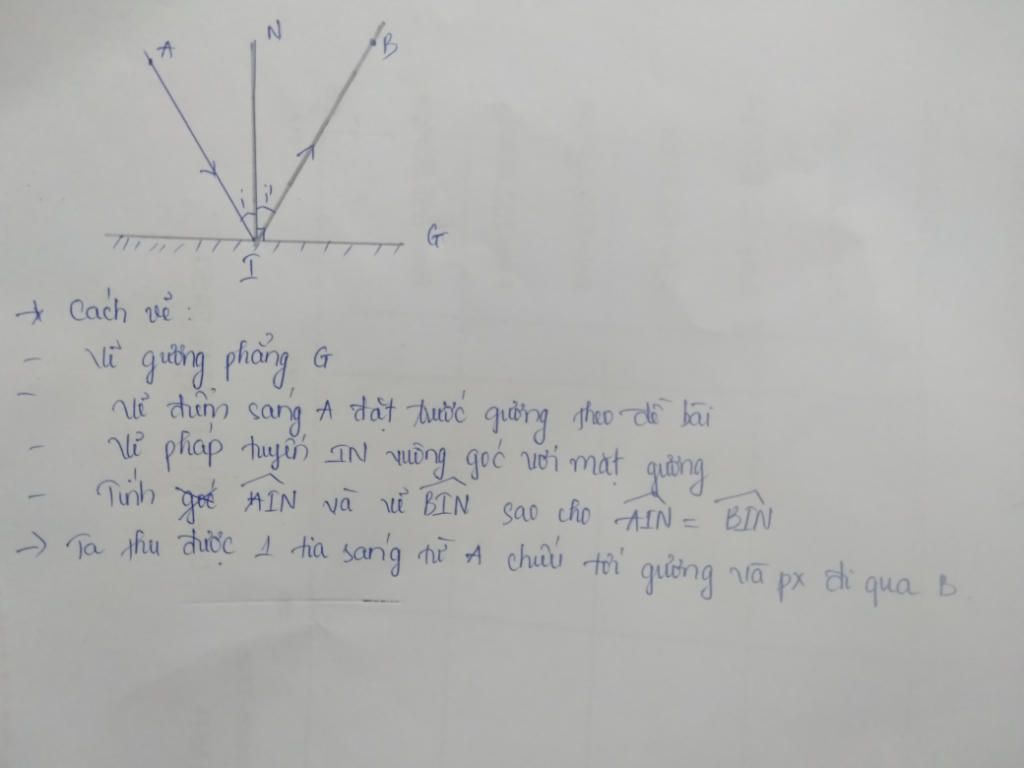 A
N
B
i i'
G
I
* Cách vẽ:
- Vẽ gương phẳng G
- Vẽ điểm sáng A đặt trước gương theo đề bài
- Vẽ pháp tuyến IN vuông góc với mặt gương
- Tính góc AIN và vẽ BIN sao cho AIN = BIN
-> Ta thu được 1 tia sáng từ A chiếu tới gương và px đi qua B.